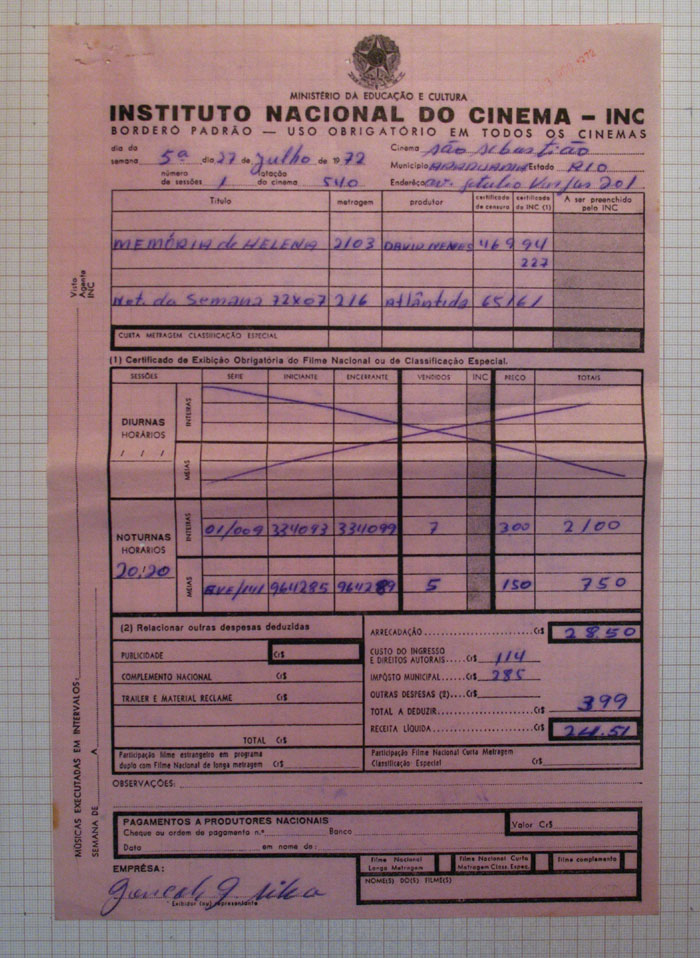 MINISTÉRIO DA EDUCAÇÃO E CULTURA
INSTITUTO NACIONAL DO CINEMA – INC
BORDERÔ PADRÃO — USO OBRIGATÓRIO EM TODOS OS CINEMAS
dia da semana 5ª dia 27 de julho de 1972 Cinema são sebastião
Município Estado RIO
número de sessões 1 lotação do cinema 540 Enderêço av. getulio Vargas 201
Título metragem produtor certificado de censura certificado do INC (1) A ser preenchido pelo INC
MEMÓRIA de HELENA 2103 DAVID NEVES 469 94
227
Not. da Semana 72x07 216 Atlântida 65161
CURTA METRAGEM CLASSIFICAÇÃO ESPECIAL
Visto Agente INC
(1) Certificado de Exibição Obrigatória do Filme Nacional ou de Classificação Especial.
SESSÕES SÉRIE INICIANTE ENCERRANTE VENDIDOS INC PREÇO TOTAIS
DIURNAS HORÁRIOS INTEIRAS
/ / / MEIAS
NOTURNAS HORÁRIOS INTEIRAS 01/009 334093 334099 7 300 2100
20:20 MEIAS 964285 964289 5 150 750
(2) Relacionar outras despesas deduzidas
PUBLICIDADE Cr$
COMPLEMENTO NACIONAL Cr$
TRAILER E MATERIAL RECLAME Cr$
TOTAL Cr$
Participação filme estrangeiro em programa
duplo com Filme Nacional de longa metragem Cr$
ARRECADAÇÃO Cr$ 28.50
CUSTO DO INGRESSO
E DIREITOS AUTORAIS Cr$ 114
IMPÔSTO MUNICIPAL Cr$ 285
OUTRAS DESPESAS (2) Cr$
TOTAL A DEDUZIR Cr$ 399
RECEITA LÍQUIDA Cr$ 24.51
Participação Filme Nacional Curta Metragem
Classificação Especial Cr$
OBSERVAÇÕES:
MÚSICAS EXECUTADAS EM INTERVALOS:
SEMANA DE A
PAGAMENTOS A PRODUTORES NACIONAIS
Valor Cr$
Cheque ou ordem de pagamento n.º Banco
Data em nome de:
Filme Nacional Longa Metragem Filme Nacional Curta Metragem Class. Espec. Filme complemento
EMPRÊSA:
NOME(S) DO(S) FILME(S)
Exibidor (ou) representante